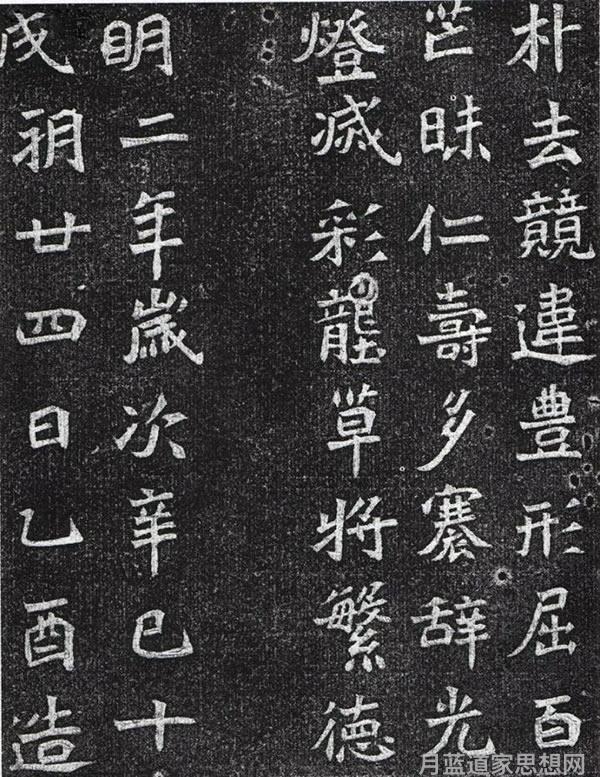 朴去競違豊形屈百
芒昧仁壽多褰辞光
燈滅彩壟草將繁德
明二年歲次辛巳十
戌朔廿四日乙酉造
月蓝道家思想网